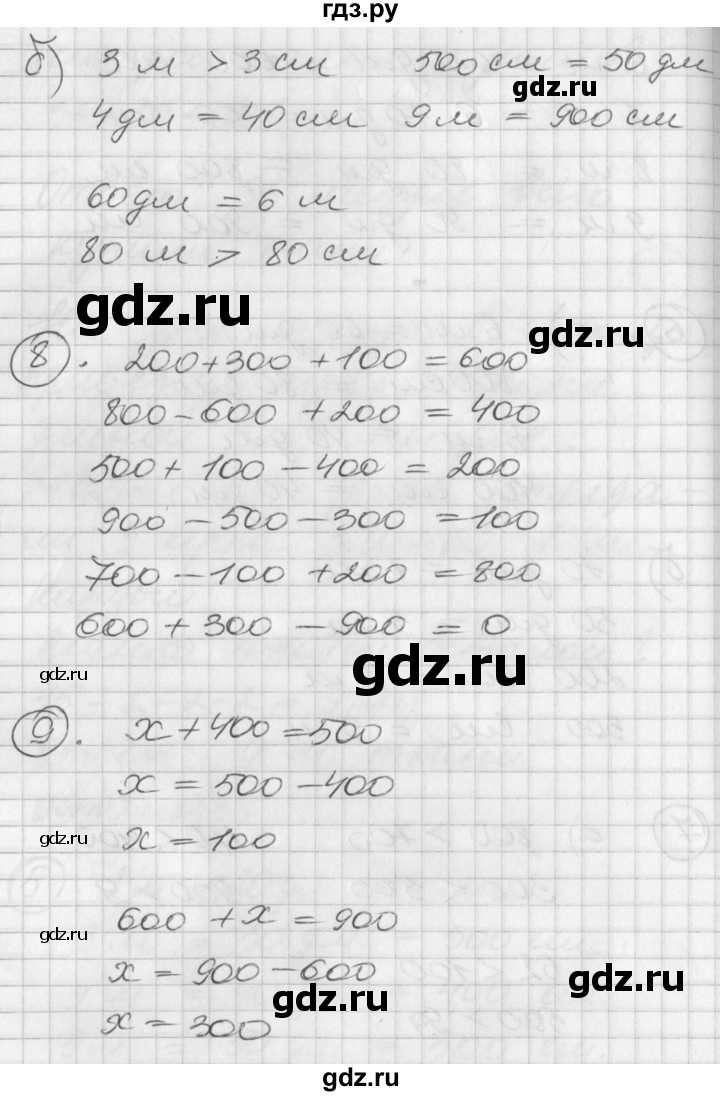 гдз.ру
б) 3 м > 3 см 500 см = 50 дм
gdz.ru
4 дм = 40 см 9 м = 900 см
60 дм = 6 м
80 м > 80 см
gdz.ru
gdz.ru
8. 200 + 300 + 100 = 600
800 - 600 + 200 = 400
500 + 100 - 400 = 200
900 - 500 - 300 = 100
700 - 100 + 200 = 800
600 + 300 - 900 = 0
gdz.ru
gdz.ru
9. x + 400 = 500
x = 500 - 400
gdz.ru
x = 100
600 + x = 900
gdz.ru
x = 900 - 600
gdz.ru
gdz.ru
x = 300
gdz.ru